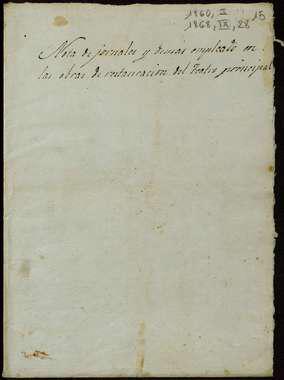 1860, II 15
1868, IX, 28
Nota de jornales y demas empleado en
las obras de restauracion del Teatro principal